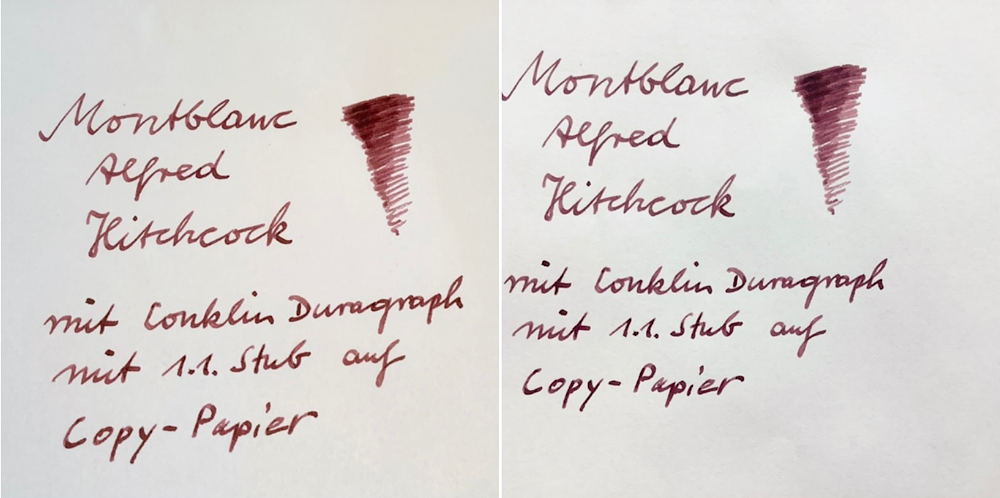 Montblanc
Alfred
Hitchcock
mit Conklin Duragraph
mit 1.1. Stub auf
Copy-Papier
Montblanc
Alfred
Hitchcock
mit Conklin Duragraph
mit 1.1. Stub auf
Copy-Papier